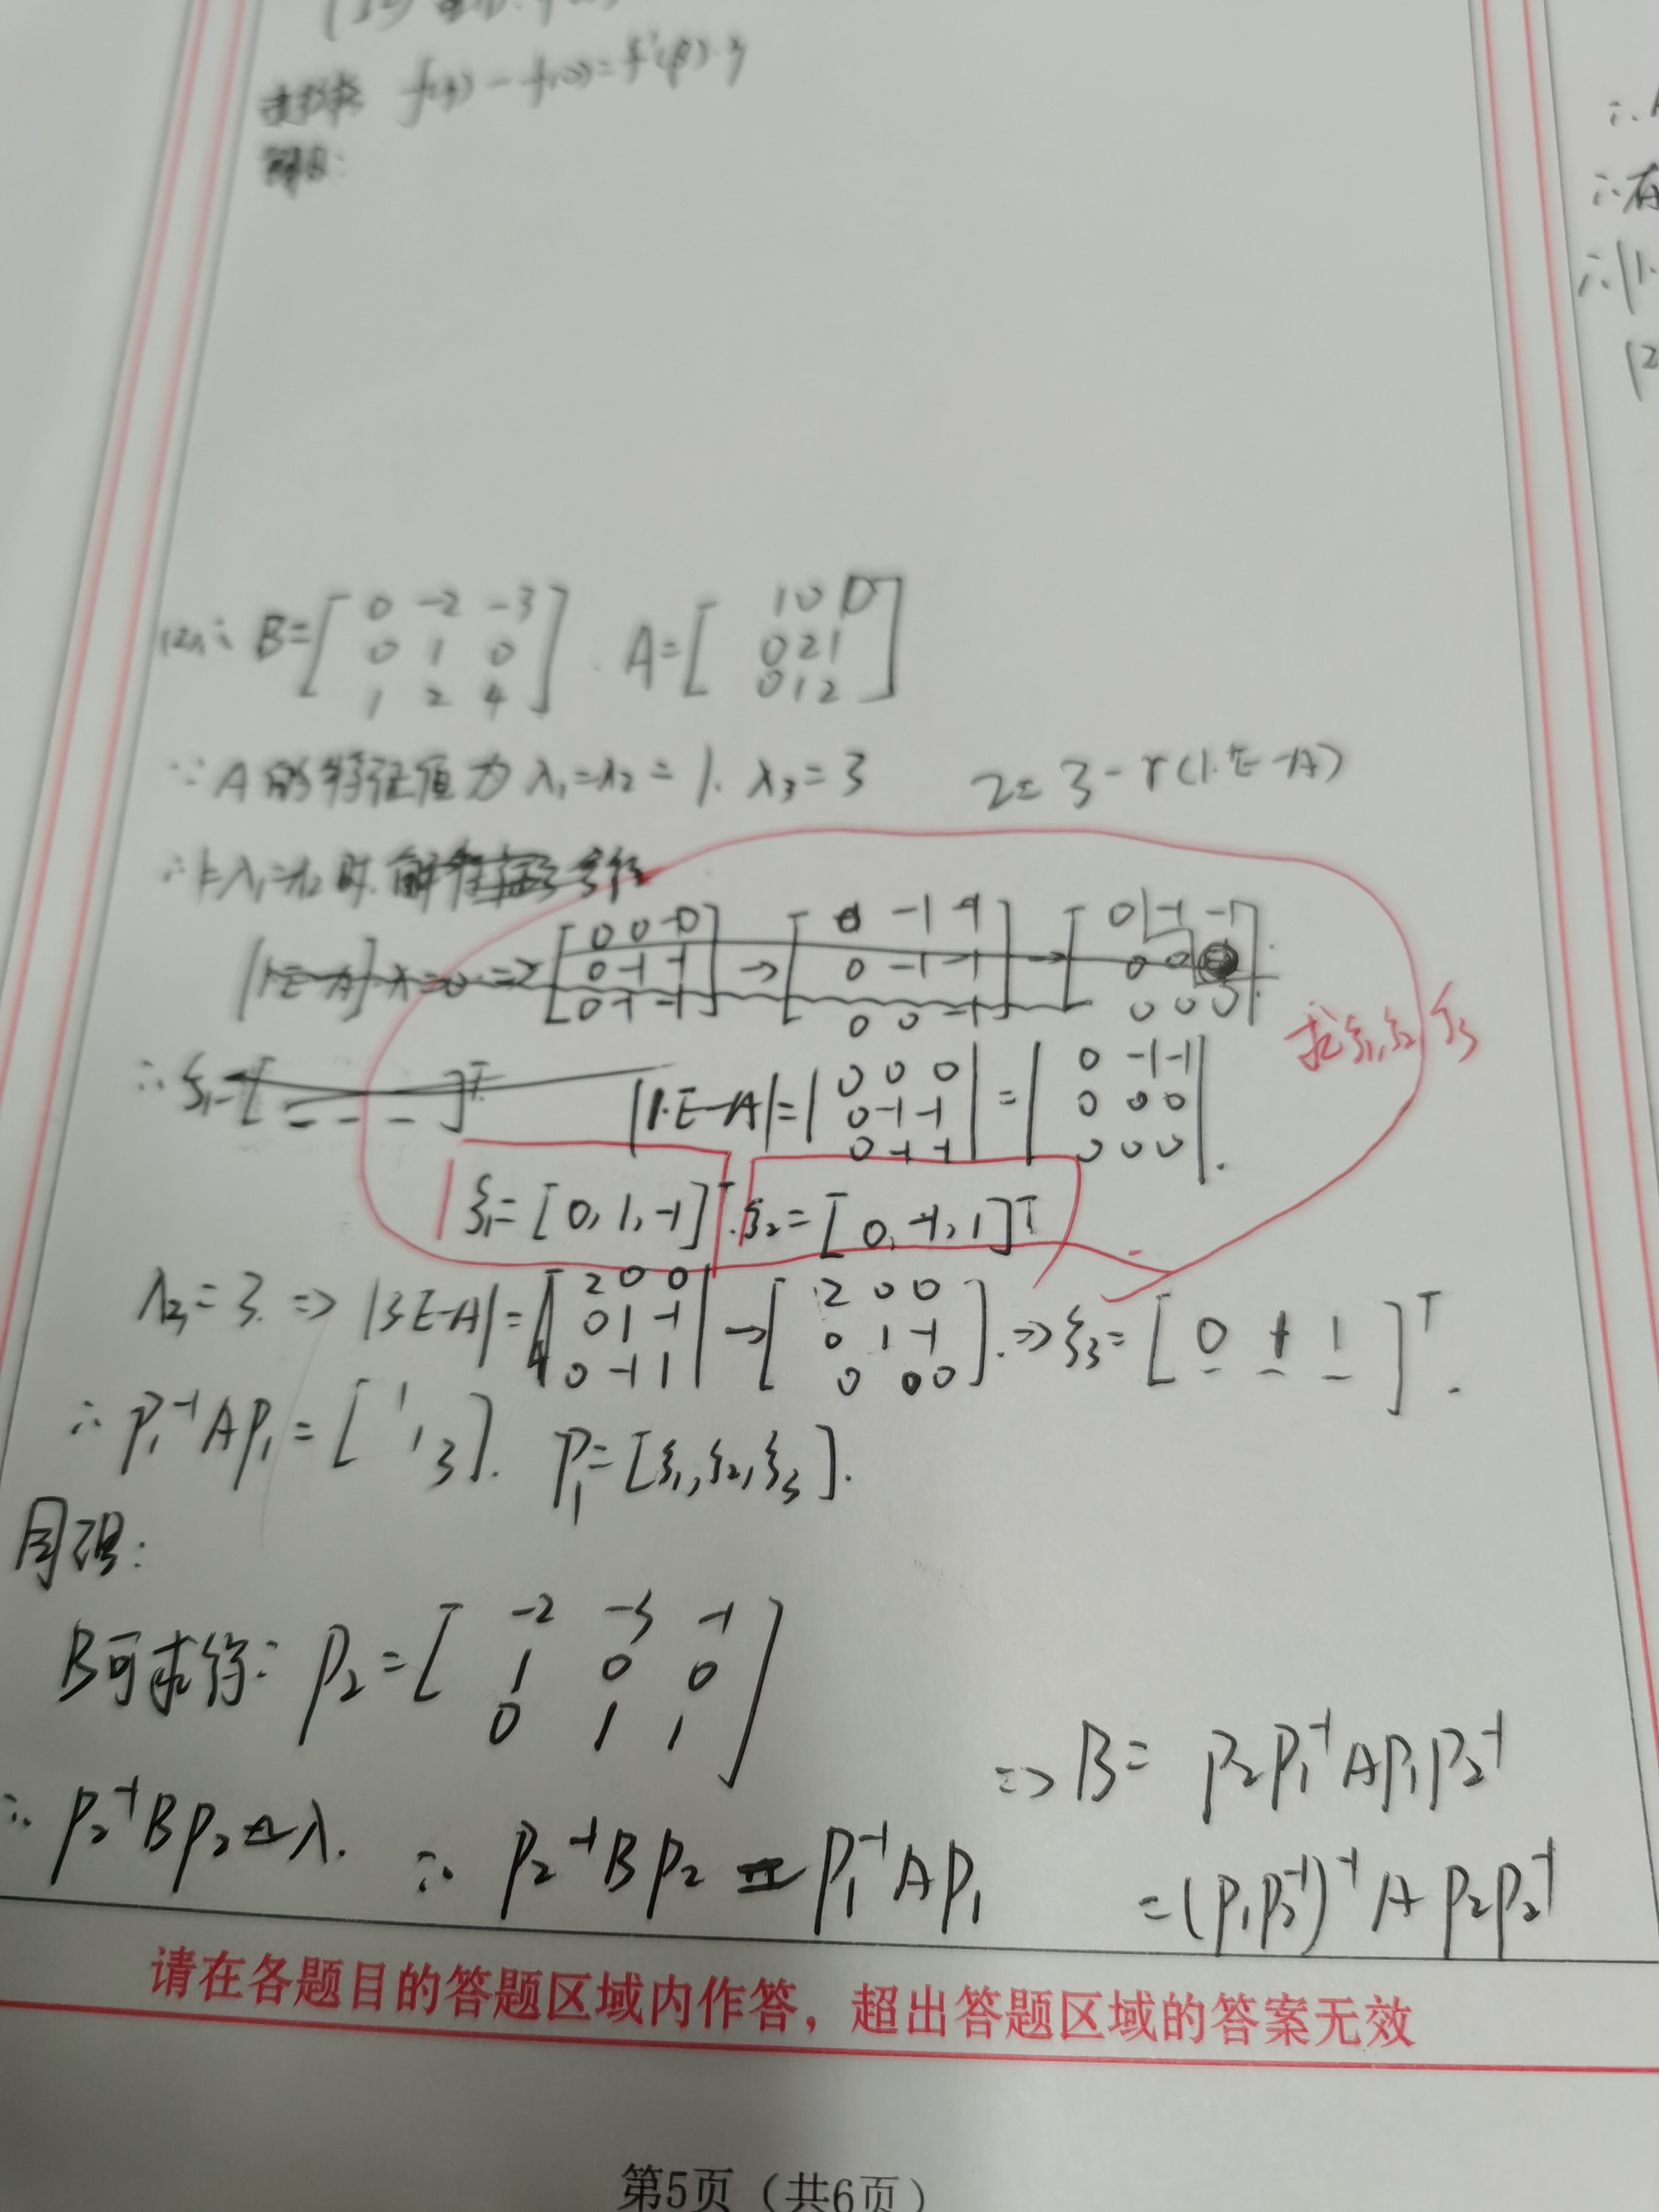 f(3) - f(0) = f'(β)·3
B = [ 0 -2 -3
0 1 0
1 2 4 ] . A = [ 1 0 0
0 2 1
0 1 2 ]
∵ A的特征值为 λ₁=λ₂=1. λ₃=3 2=3-r(1·E-A)
[1·E-A]·x=0 => [ 0 0 0
0 -1 -1
0 -1 -1 ] → [ 0 -1 -1
0 -1 -1
0 0 -1 ] → [ 0 -1 -1
0 0
0 0 0 ].
求ξ₁,ξ₂,ξ₃
∴ ξ₁=[ _ _ _ ]ᵀ
|1·E-A| = | 0 0 0
0 -1 -1
0 -1 -1 | = | 0 -1 -1
0 0 0
0 0 0 |.
ξ₁=[0,1,-1]ᵀ. ξ₂=[0,-1,1]ᵀ
λ₃=3. => |3E-A| = | 2 0 0
0 1 -1
0 -1 1 | → [ 2 0 0
0 1 -1
0 0 0 ]. => ξ₃=[ 0 1 1 ]ᵀ.
∴ P₁⁻¹AP₁ = [ 1 1 3 ]. P₁=[ξ₁,ξ₂,ξ₃].
同理:
B可求得: P₂ = [ -2 -3 -1
1 0 0
0 1 1 ]
∴ P₂⁻¹BP₂=λ. ∴ P₂⁻¹BP₂ = P₁⁻¹AP₁
=> B = P₂P₁⁻¹AP₁P₂⁻¹
= (P₁P₂⁻¹)⁻¹ A P₂P₂⁻¹
请在各题目的答题区域内作答，超出答题区域的答案无效
第5页（共6页）